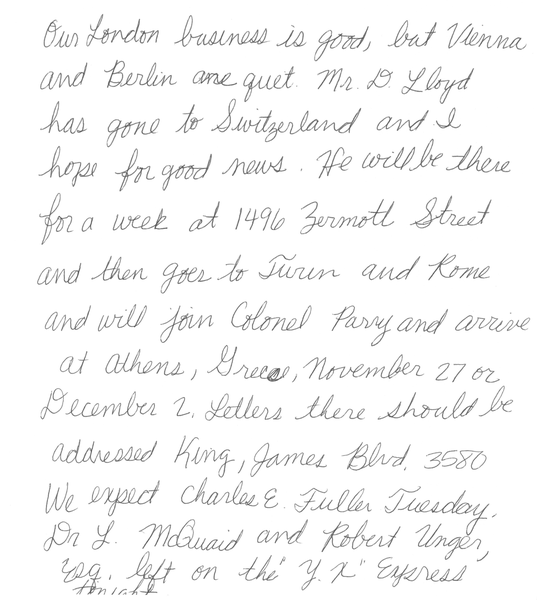 Our London business is good, but Vienna
and Berlin are quet. Mr. D. Lloyd
has gone to Switzerland and I
hope for good news. He will be there
for a week at 1496 Zermott Street
and then goes to Turin and Rome
and will join Colonel Parry and arrive
at Athens, Greece, November 27 or
December 2. Letters there should be
addressed King, James Blvd. 3580
We expect Charles E. Fuller Tuesday.
Dr L. McQuaid and Robert Unger,
Esq. left on the "Y.X" Express
tonight